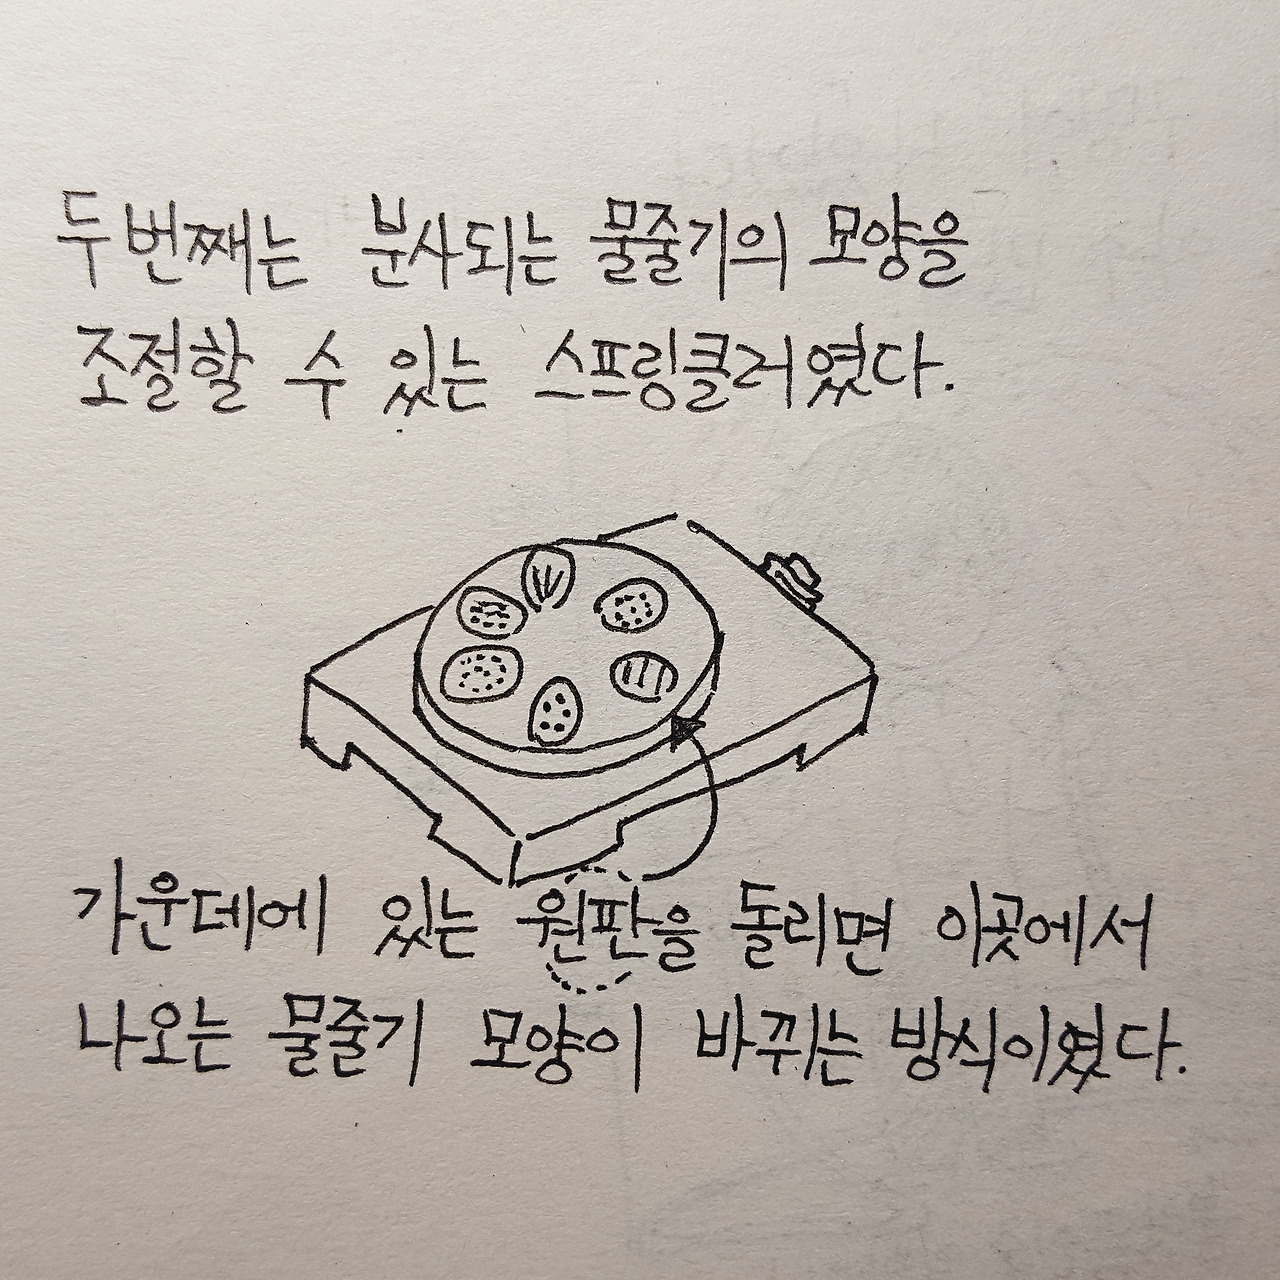 두번째는 분사되는 물줄기의 모양을
조절할 수 있는 스프링클러였다.
가운데에 있는 원판을 돌리면 이곳에서
나오는 물줄기 모양이 바뀌는 방식이였다.